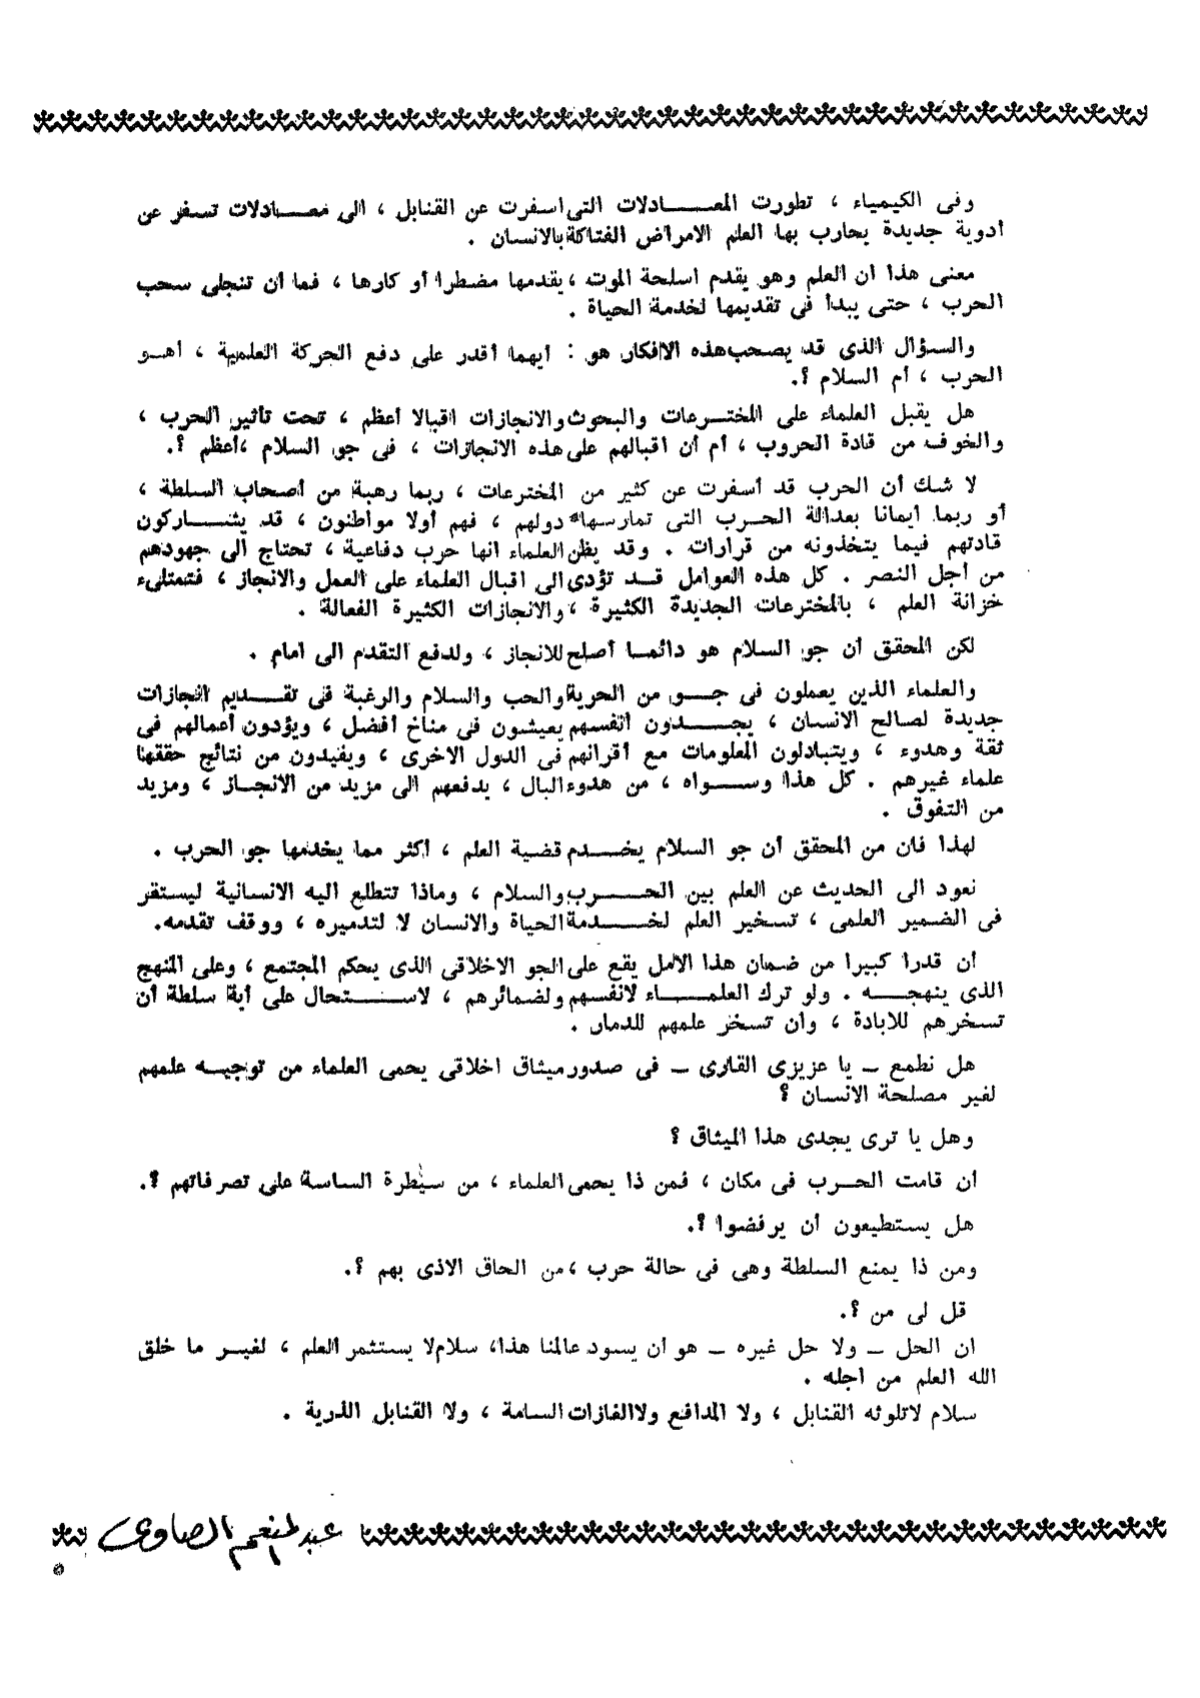 وفى الكيمياء ، تطورت المعادلات التى اسفرت عن القنابل ، الى معادلات تسفر عن
أدوية جديدة يحارب بها العلم الامراض الفتاكة بالانسان .
معنى هذا ان العلم وهو يقدم اسلحة الموت ، يقدمها مضطرا أو كارها ، فما أن تنجلى سحب
الحرب ، حتى يبدأ فى تقديمها لخدمة الحياة .
والسؤال الذى قد يصحب هذه الافكار هو : ايهما أقدر على دفع الحركة العلمية ، أهو
الحرب ، أم السلام ؟.
هل يقبل العلماء على المخترعات والبحوث والانجازات اقبالا أعظم ، تحت تأثير الحرب ،
والخوف من قادة الحروب ، أم أن اقبالهم على هذه الانجازات ، فى جو السلام ، أعظم ؟.
لا شك أن الحرب قد أسفرت عن كثير من المخترعات ، ربما رهبة من أصحاب السلطة ،
أو ربما ايمانا بعدالة الحرب التى تمارسها دولهم ، فهم أولا مواطنون ، قد يشاركون
قادتهم فيما يتخذونه من قرارات . وقد يظن العلماء انها حرب دفاعية ، تحتاج الى جهودهم
من أجل النصر . كل هذه العوامل قد تؤدى الى اقبال العلماء على العمل والانجاز ، فتمتلىء
خزانة العلم ، بالمخترعات الجديدة الكثيرة ، والانجازات الكثيرة الفعالة .
لكن المحقق أن جو السلام هو دائما أصلح للانجاز ، ولدفع التقدم الى امام .
والعلماء الذين يعملون فى جو من الحرية والحب والسلام والرغبة فى تقديم انجازات
جديدة لصالح الانسان ، يجدون أنفسهم يعيشون فى مناخ أفضل ، ويؤدون أعمالهم فى
ثقة وهدوء ، ويتبادلون المعلومات مع أقرانهم فى الدول الاخرى ، ويفيدون من نتائج حققها
علماء غيرهم . كل هذا وسواه ، من هدوء البال ، يدفعهم الى مزيد من الانجاز ، ومزيد
من التفوق .
لهذا فان من المحقق أن جو السلام يخدم قضية العلم ، أكثر مما يخدمها جو الحرب .
نعود الى الحديث عن العلم بين الحرب والسلام ، وماذا تتطلع اليه الانسانية ليستقر
فى الضمير العلمى ، تسخير العلم لخدمة الحياة والانسان لا لتدميره ، ووقف تقدمه.
أن قدرا كبيرا من ضمان هذا الامل يقع على الجو الاخلاقى الذى يحكم المجتمع ، وعلى المنهج
الذى ينهجه . ولو ترك العلماء لانفسهم ولضمائرهم ، لاستحال على أية سلطة أن
تسخرهم للابادة ، وأن تسخر علمهم للدمار .
هل نطمع ــ يا عزيزى القارى ــ فى صدور ميثاق اخلاقى يحمى العلماء من توجيه علمهم
لغير مصلحة الانسان ؟
وهل يا ترى يجدى هذا الميثاق ؟
أن قامت الحرب فى مكان ، فمن ذا يحمى العلماء ، من سيطرة الساسة على تصرفاتهم ؟.
هل يستطيعون أن يرفضوا ؟.
ومن ذا يمنع السلطة وهى فى حالة حرب ، من الحاق الاذى بهم ؟.
قل لى من ؟.
ان الحل ــ ولا حل غيره ــ هو أن يسود عالمنا هذا، سلام لا يستثمر العلم ، لغير ما خلق
الله العلم من اجله .
سلام لاتلوثه القنابل ، ولا المدافع ولاالغازات السامة ، ولا القنابل الذرية .
عبد المنعم الصاوى
٥